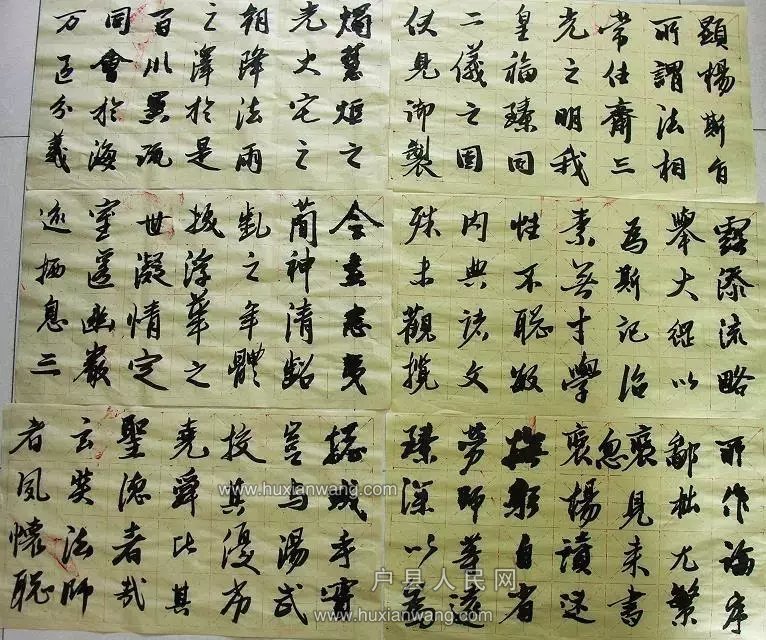 顯揚斯旨
所謂法相
常住齊三
光之明我
皇福臻同
二儀之固
伏見御製
燭慧炬之
光火宅之
朝降法雨
之澤於是
百川異流
同會於海
万區分義
露添流略
舉大綱以
為斯記治
素無才學
性不聰敏
內典諸文
殊未觀攬
令立志夷
簡神清齠
齔之年體
拔浮華之
世凝情定
室匿幽巖
迹栖息三
所作論序
鄙拙尤繁
褒忽見來書
褒揚讚述
撫躬自省
勞師等遠
臻深以為
總成乎實
豈與湯武
校其優劣
堯舜比其
聖德者哉
玄奘法師
者夙懷聰
www.huxianwang.com
户县人民网
www.huxianwang.com